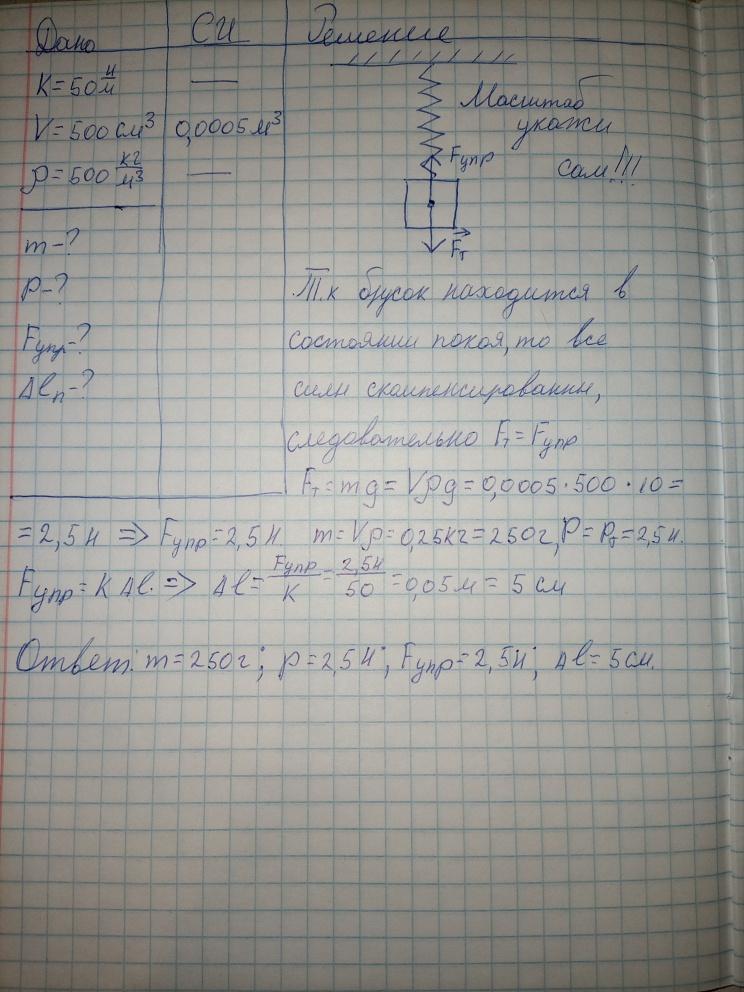 Дано СИ Решение
K=50 Н/м —
V=500 см³ 0,0005 м³
ρ=500 кг/м³ —
Масштаб
укажи
сам!!!
Fупр
Fт
m-?
P-?
Fупр-?
Δlп-?
Т.к брусок находится в
состоянии покоя, то все
силы скомпенсированны,
следовательно Fт = Fупр
Fт = mg = Vρg = 0,0005·500·10 =
= 2,5 Н => Fупр = 2,5 Н. m = Vρ = 0,25кг = 250г, P = Pт = 2,5 Н.
Fупр = KΔl. => Δl = Fупр/K = 2,5Н/50 = 0,05 м = 5 см
Ответ: m = 250г; p = 2,5 Н; Fупр = 2,5 Н; Δl = 5 см.